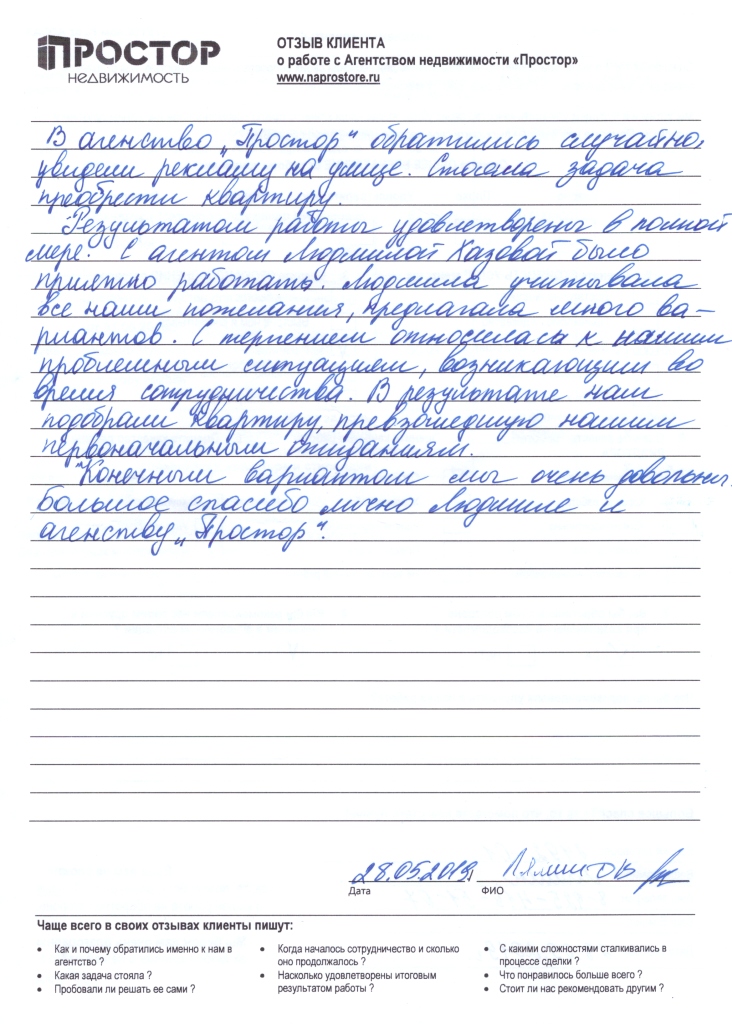 ПРОСТОР
НЕДВИЖИМОСТЬ
ОТЗЫВ КЛИЕНТА
о работе с Агентством недвижимости «Простор»
www.naprostore.ru
В агенство „Простор“ обратились случайно,
увидели рекламу на улице. Стояла задача
преобрести квартиру.
Результатом работы удовлетворены в полной
мере. С агентом Людмилой Хазовой было
приятно работать. Людмила учитывала
все наши пожелания, предлагала много ва-
риантов. С терпением относилась к нашим
проблемным ситуациям, возникающим во
время сотрудничества. В результате нам
подобрали квартиру, превзошедшую нашим
первоначальным ожиданиям.
Конечным вариантом мы очень довольны.
Большое спасибо лично Людмиле и
агенству „Простор“.
28.05.2019,
Дата
ФИО
Чаще всего в своих отзывах клиенты пишут:
• Как и почему обратились именно к нам в
агентство ?
• Какая задача стояла ?
• Пробовали ли решать ее сами ?
• Когда началось сотрудничество и сколько
оно продолжалось ?
• Насколько удовлетворены итоговым
результатом работы ?
• С какими сложностями сталкивались в
процессе сделки ?
• Что понравилось больше всего ?
• Стоит ли нас рекомендовать другим ?